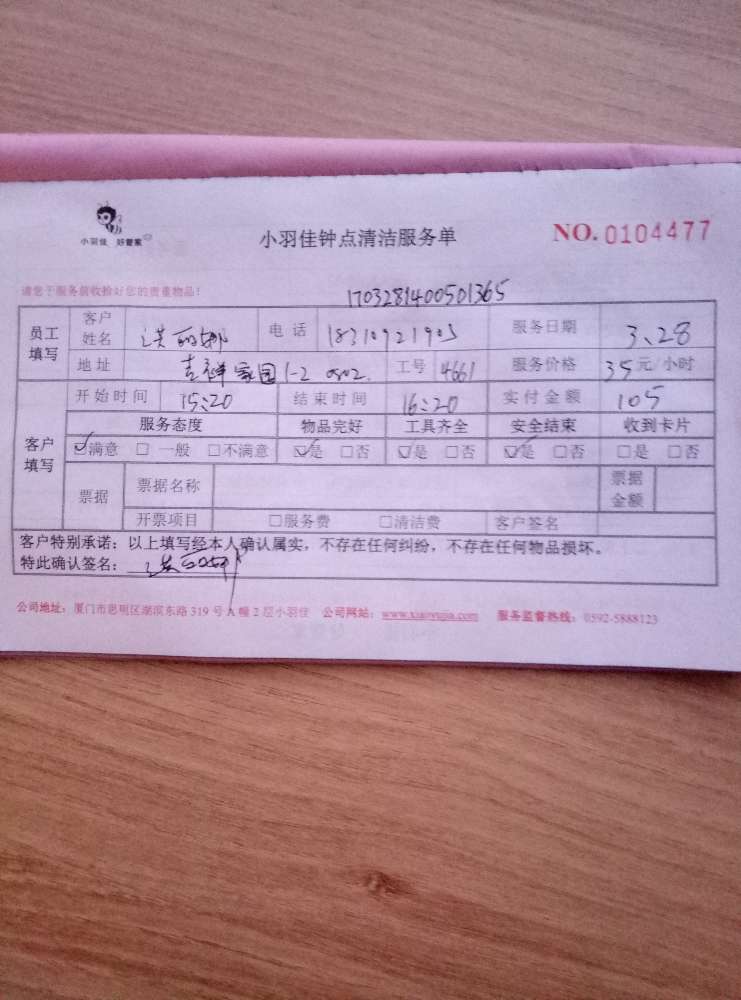 小羽佳 好管家
小羽佳钟点清洁服务单
NO. 0104477
请您于服务前收拾好您的贵重物品！
1703281400501365
员工填写 客户姓名 洪丽娜 电话 18310921905 服务日期 3、28
地址 吉祥家园1-2 0802. 工号 4661 服务价格 35元/小时
开始时间 15:20 结束时间 16:20 实付金额 105
客户填写 服务态度 物品完好 工具齐全 安全结束 收到卡片
☑满意 □ 一般 □不满意 ☑是 □否 ☑是 □否 ☑是 □否 □是 □否
票据 票据名称 票据金额
开票项目 □服务费 □清洁费 客户签名
客户特别承诺：以上填写经本人确认属实，不存在任何纠纷，不存在任何物品损坏。
特此确认签名： 洪丽娜
公司地址：厦门市思明区湖滨东路 319 号 A 幢 2 层小羽佳 公司网站：www.xiaoyujia.com 服务监督热线：0592-5888123